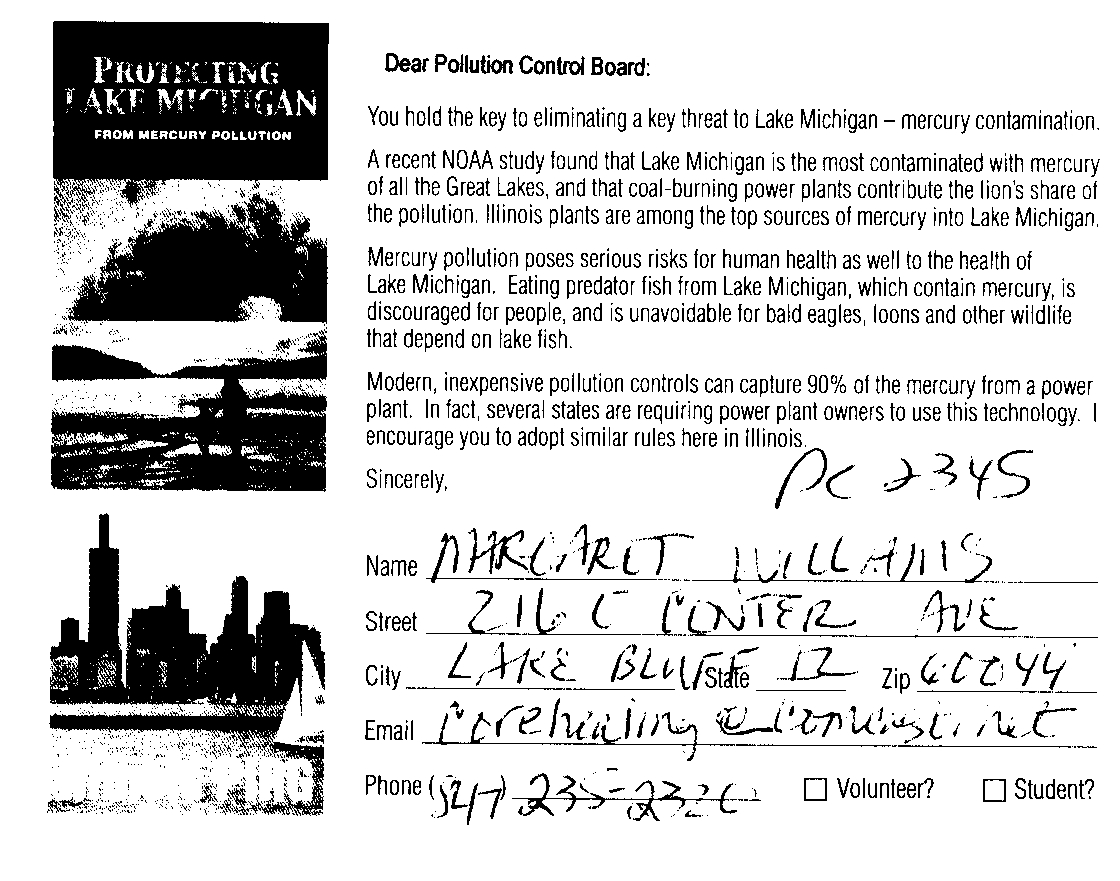 PROTECTING
LAKE MICHIGAN
FROM MERCURY POLLUTION
Dear Pollution Control Board:
You hold the key to eliminating a key threat to Lake Michigan – mercury contamination.
A recent NOAA study found that Lake Michigan is the most contaminated with mercury
of all the Great Lakes, and that coal-burning power plants contribute the lion's share of
the pollution. Illinois plants are among the top sources of mercury into Lake Michigan.
Mercury pollution poses serious risks for human health as well to the health of
Lake Michigan. Eating predator fish from Lake Michigan, which contain mercury, is
discouraged for people, and is unavoidable for bald eagles, loons and other wildlife
that depend on lake fish.
Modern, inexpensive pollution controls can capture 90% of the mercury from a power
plant. In fact, several states are requiring power plant owners to use this technology. I
encourage you to adopt similar rules here in Illinois.
Sincerely,
PC 2345
Name MARGARET WILLIAMS
Street 216 E CENTER AVE
City LAKE BLUFF State IL Zip 60044
Email corehealing@comcast.net
Phone (847) 235-
Volunteer?
Student?